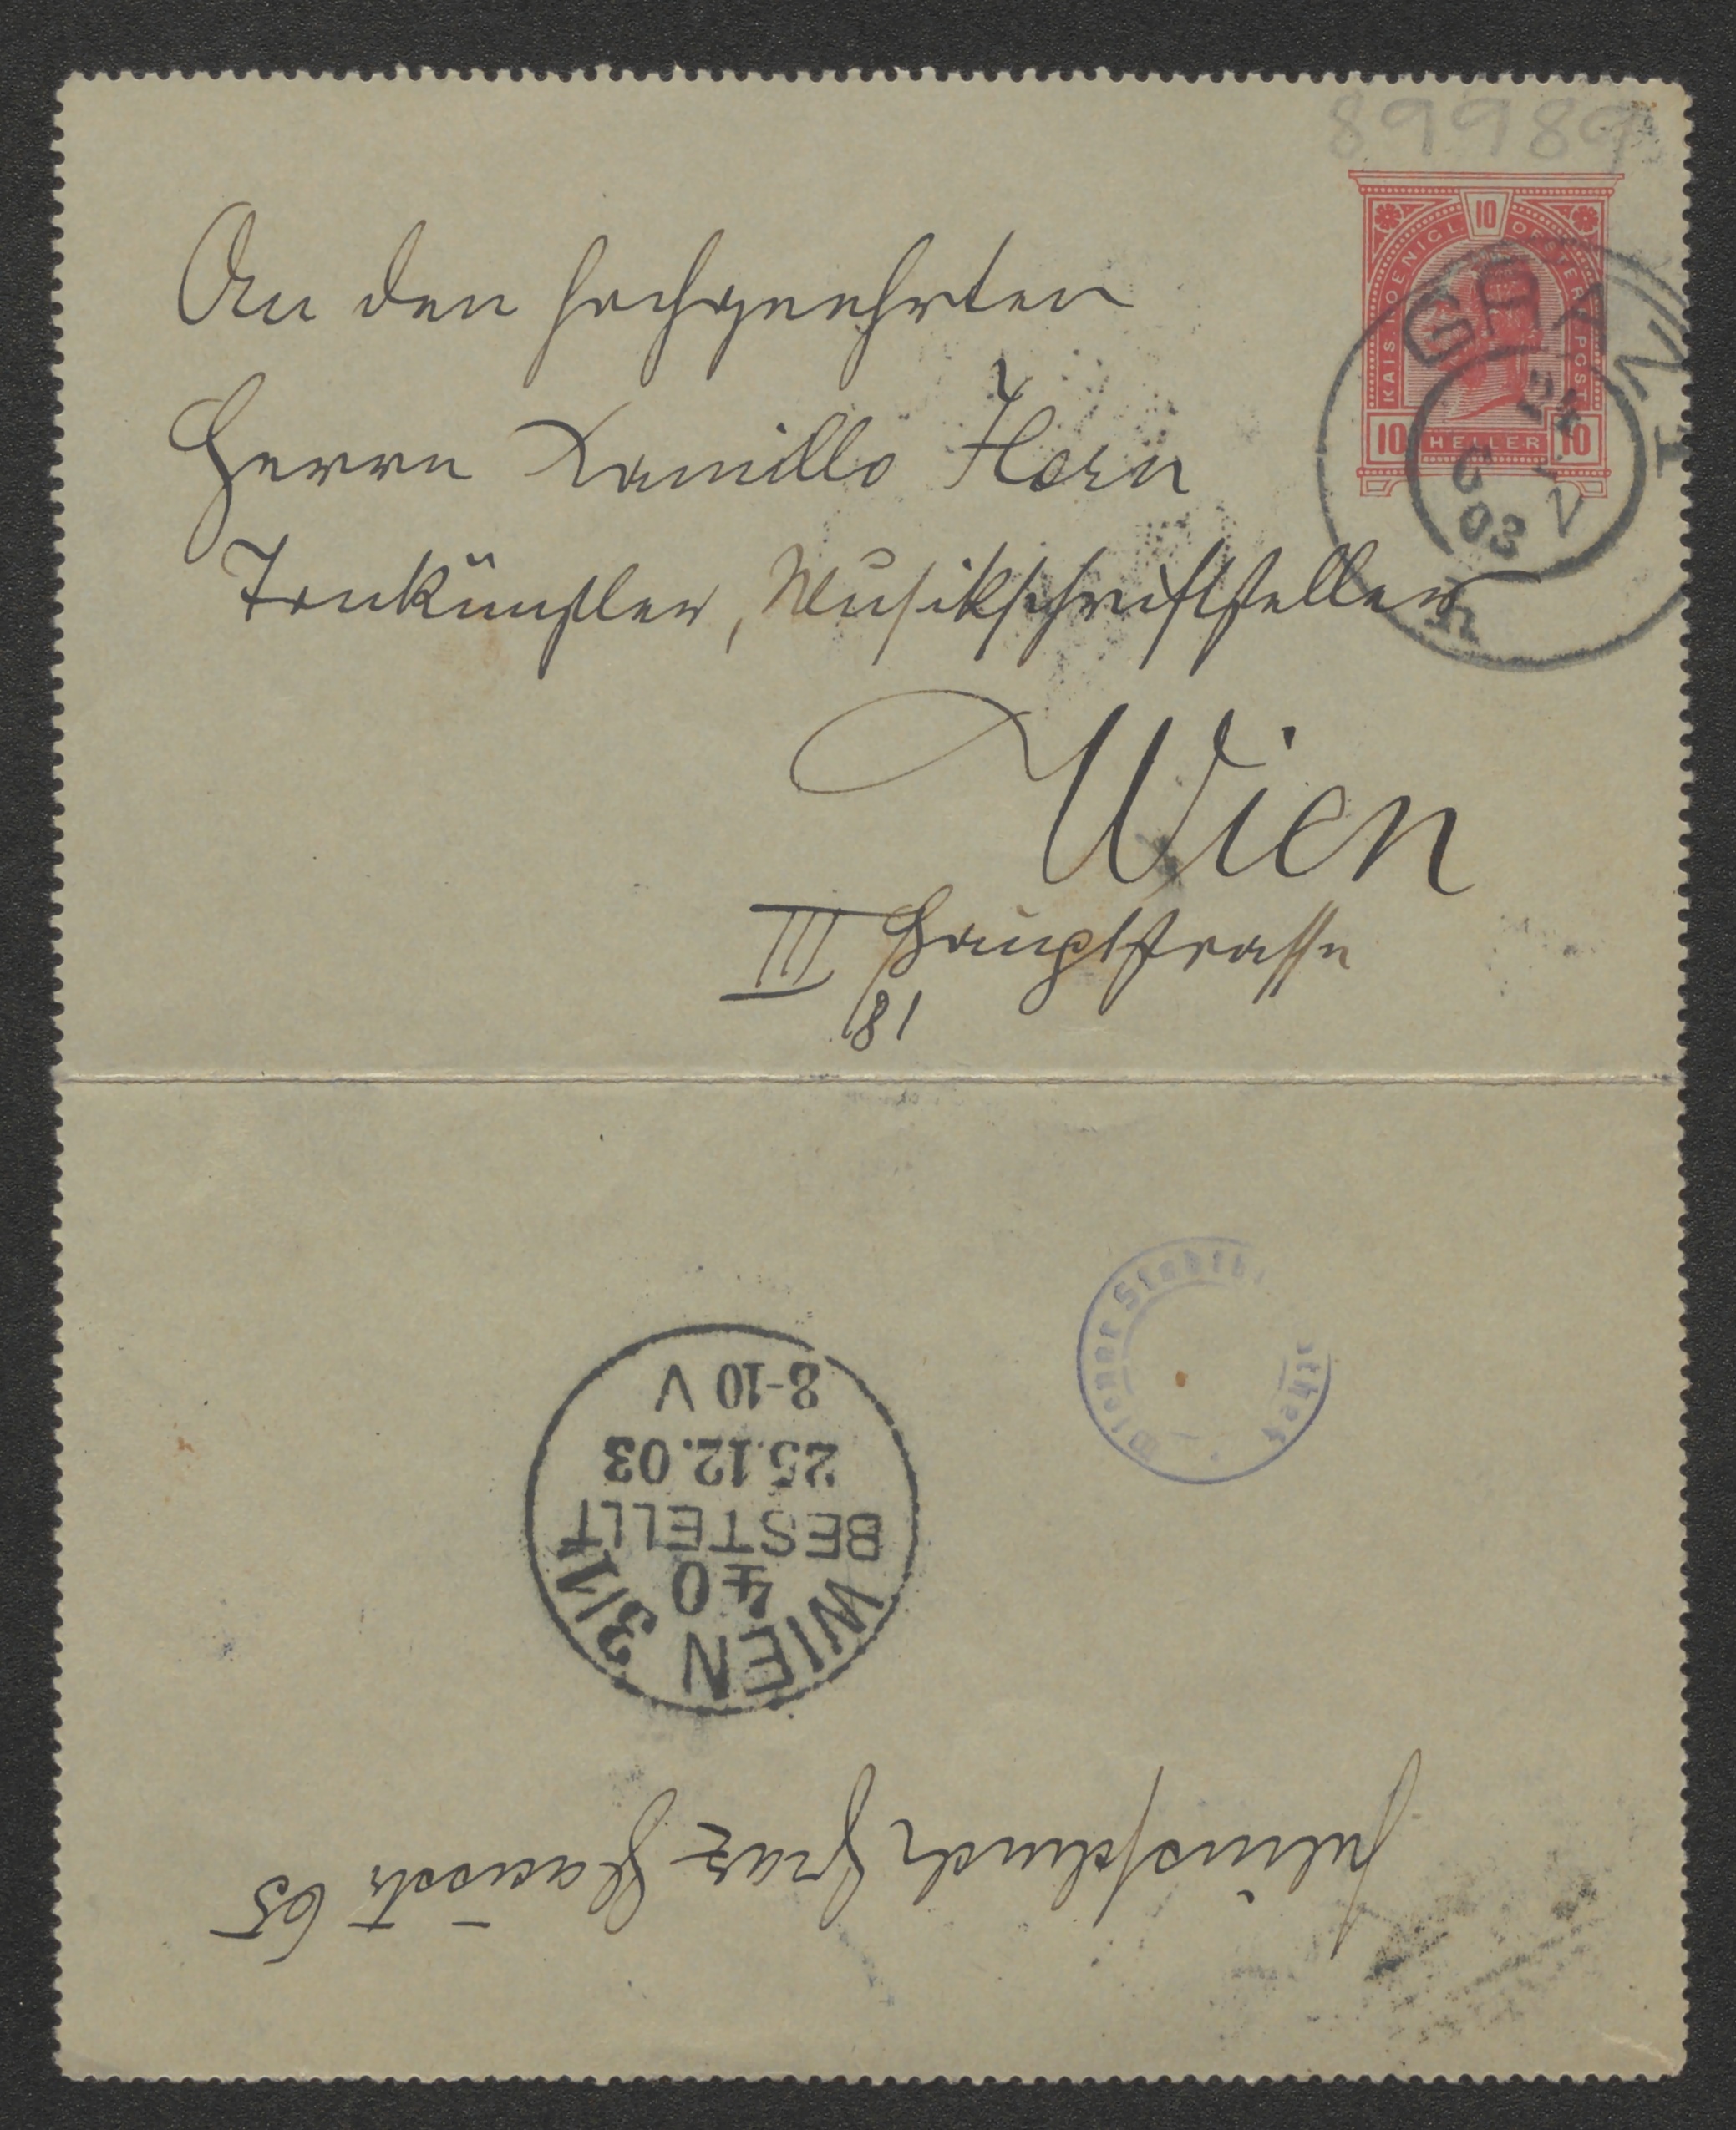 89989
10
KAIS. KOENIGL. OESTERR. POST
10 HELLER 10
GRAZ
24
03
An den hochgeehrten
Herrn Kamillo Horn
Tonkünstler, Musikschriftsteller
Wien
III Hauptstrasse
81
Wiener Stadtb
8-10 V
25.12.03
BESTELLT
40
WIEN 3/1
Julius Schuch Graz 65